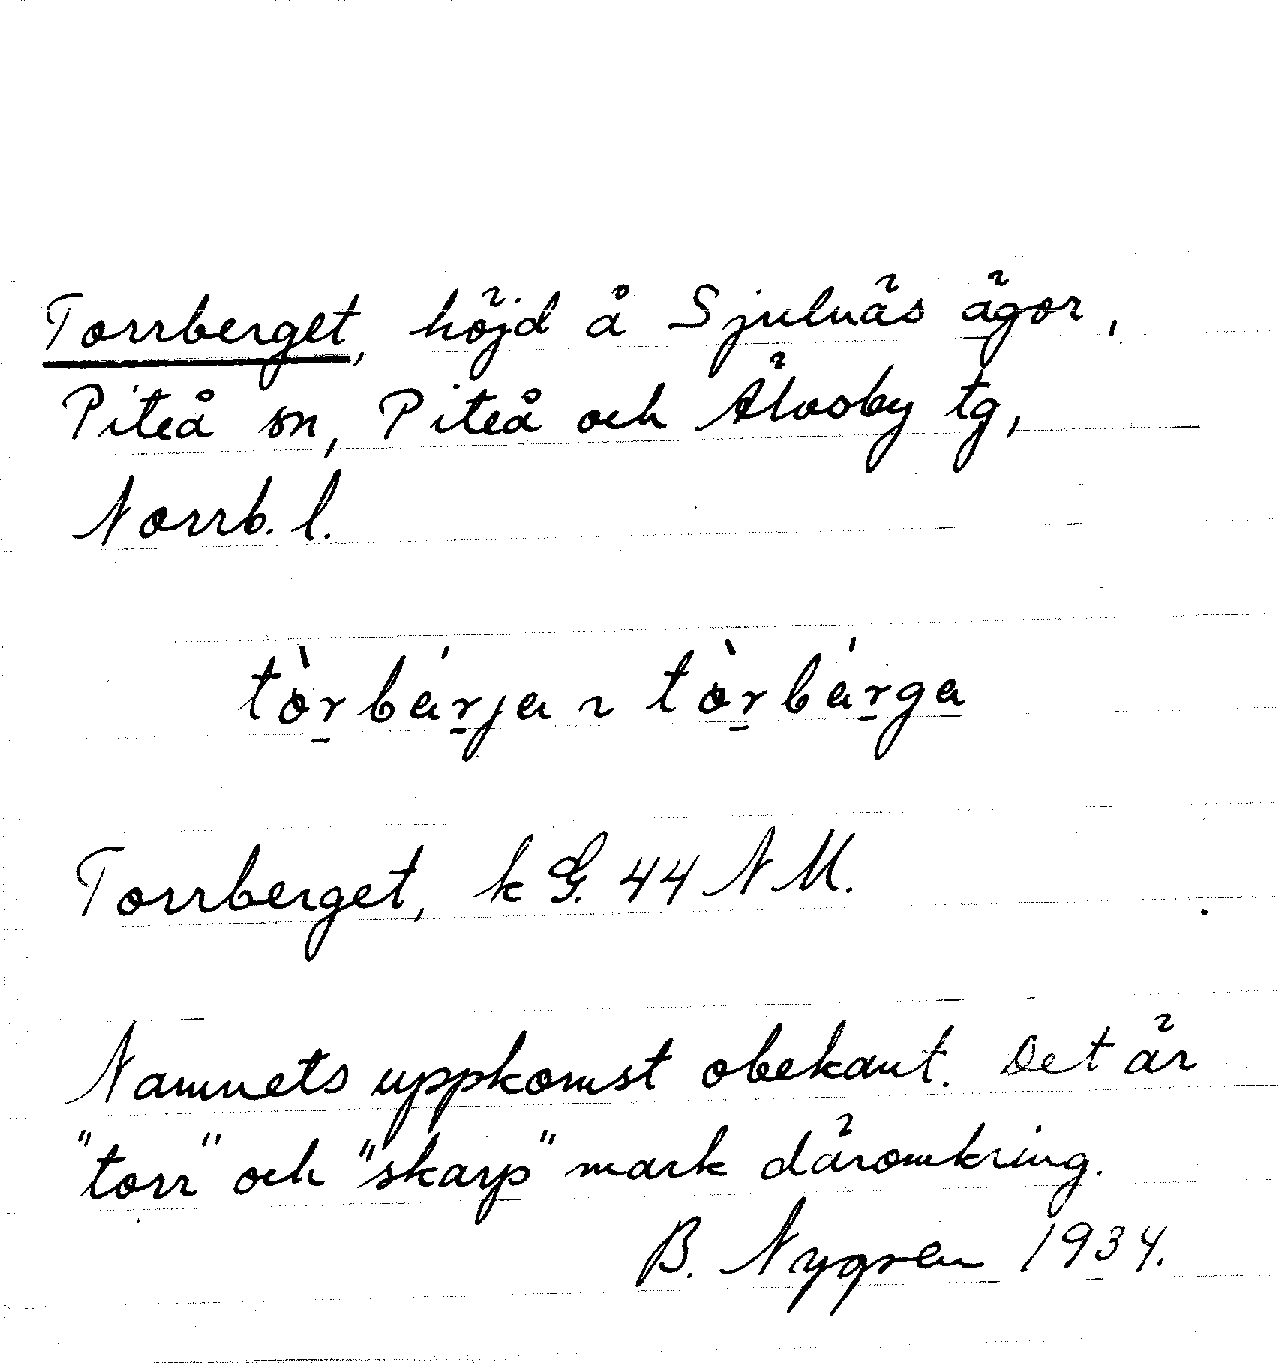 Torrberget, höjd å Sjulnäs ägor,
Piteå sn, Piteå och Älvsby tg,
Norrb. l.
tòr̠bár̠ja ~ tòr̠bár̠ga
Torrberget, k G. 44 NM.
Namnets uppkomst obekant. Det är
"torr" och "skarp" mark däromkring.
B. Nygren 1934.